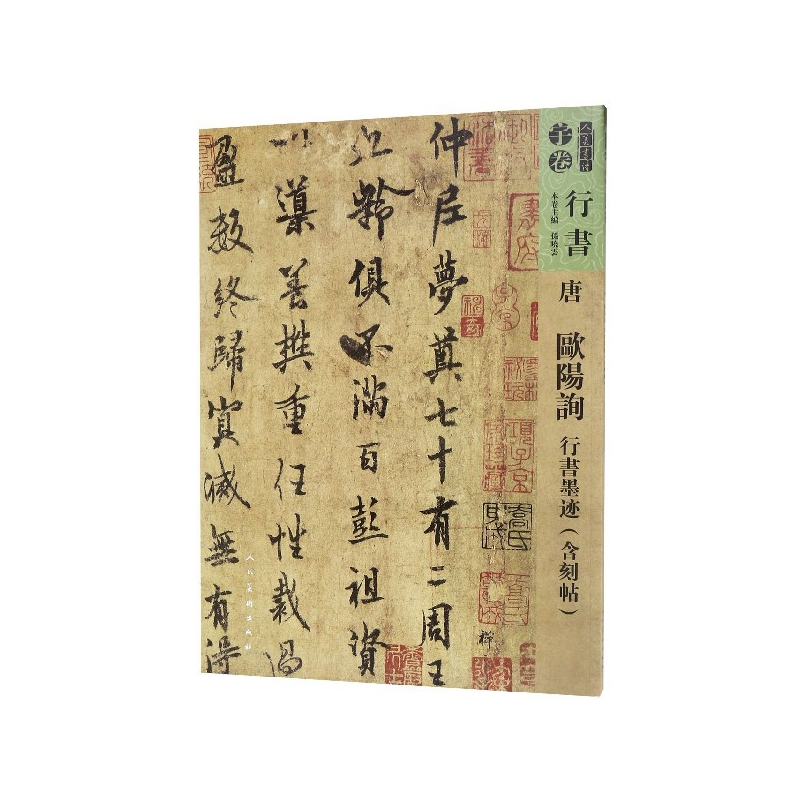 人美書譜
宇卷
行書
本卷主編 孫曉雲
唐 歐陽詢 行書墨迹（含刻帖）
仲尼夢奠七十有二周王
九齡俱不滿百彭祖資
以導養樊重任性裁過
盈數終歸冥滅無有得
人民美術出版社